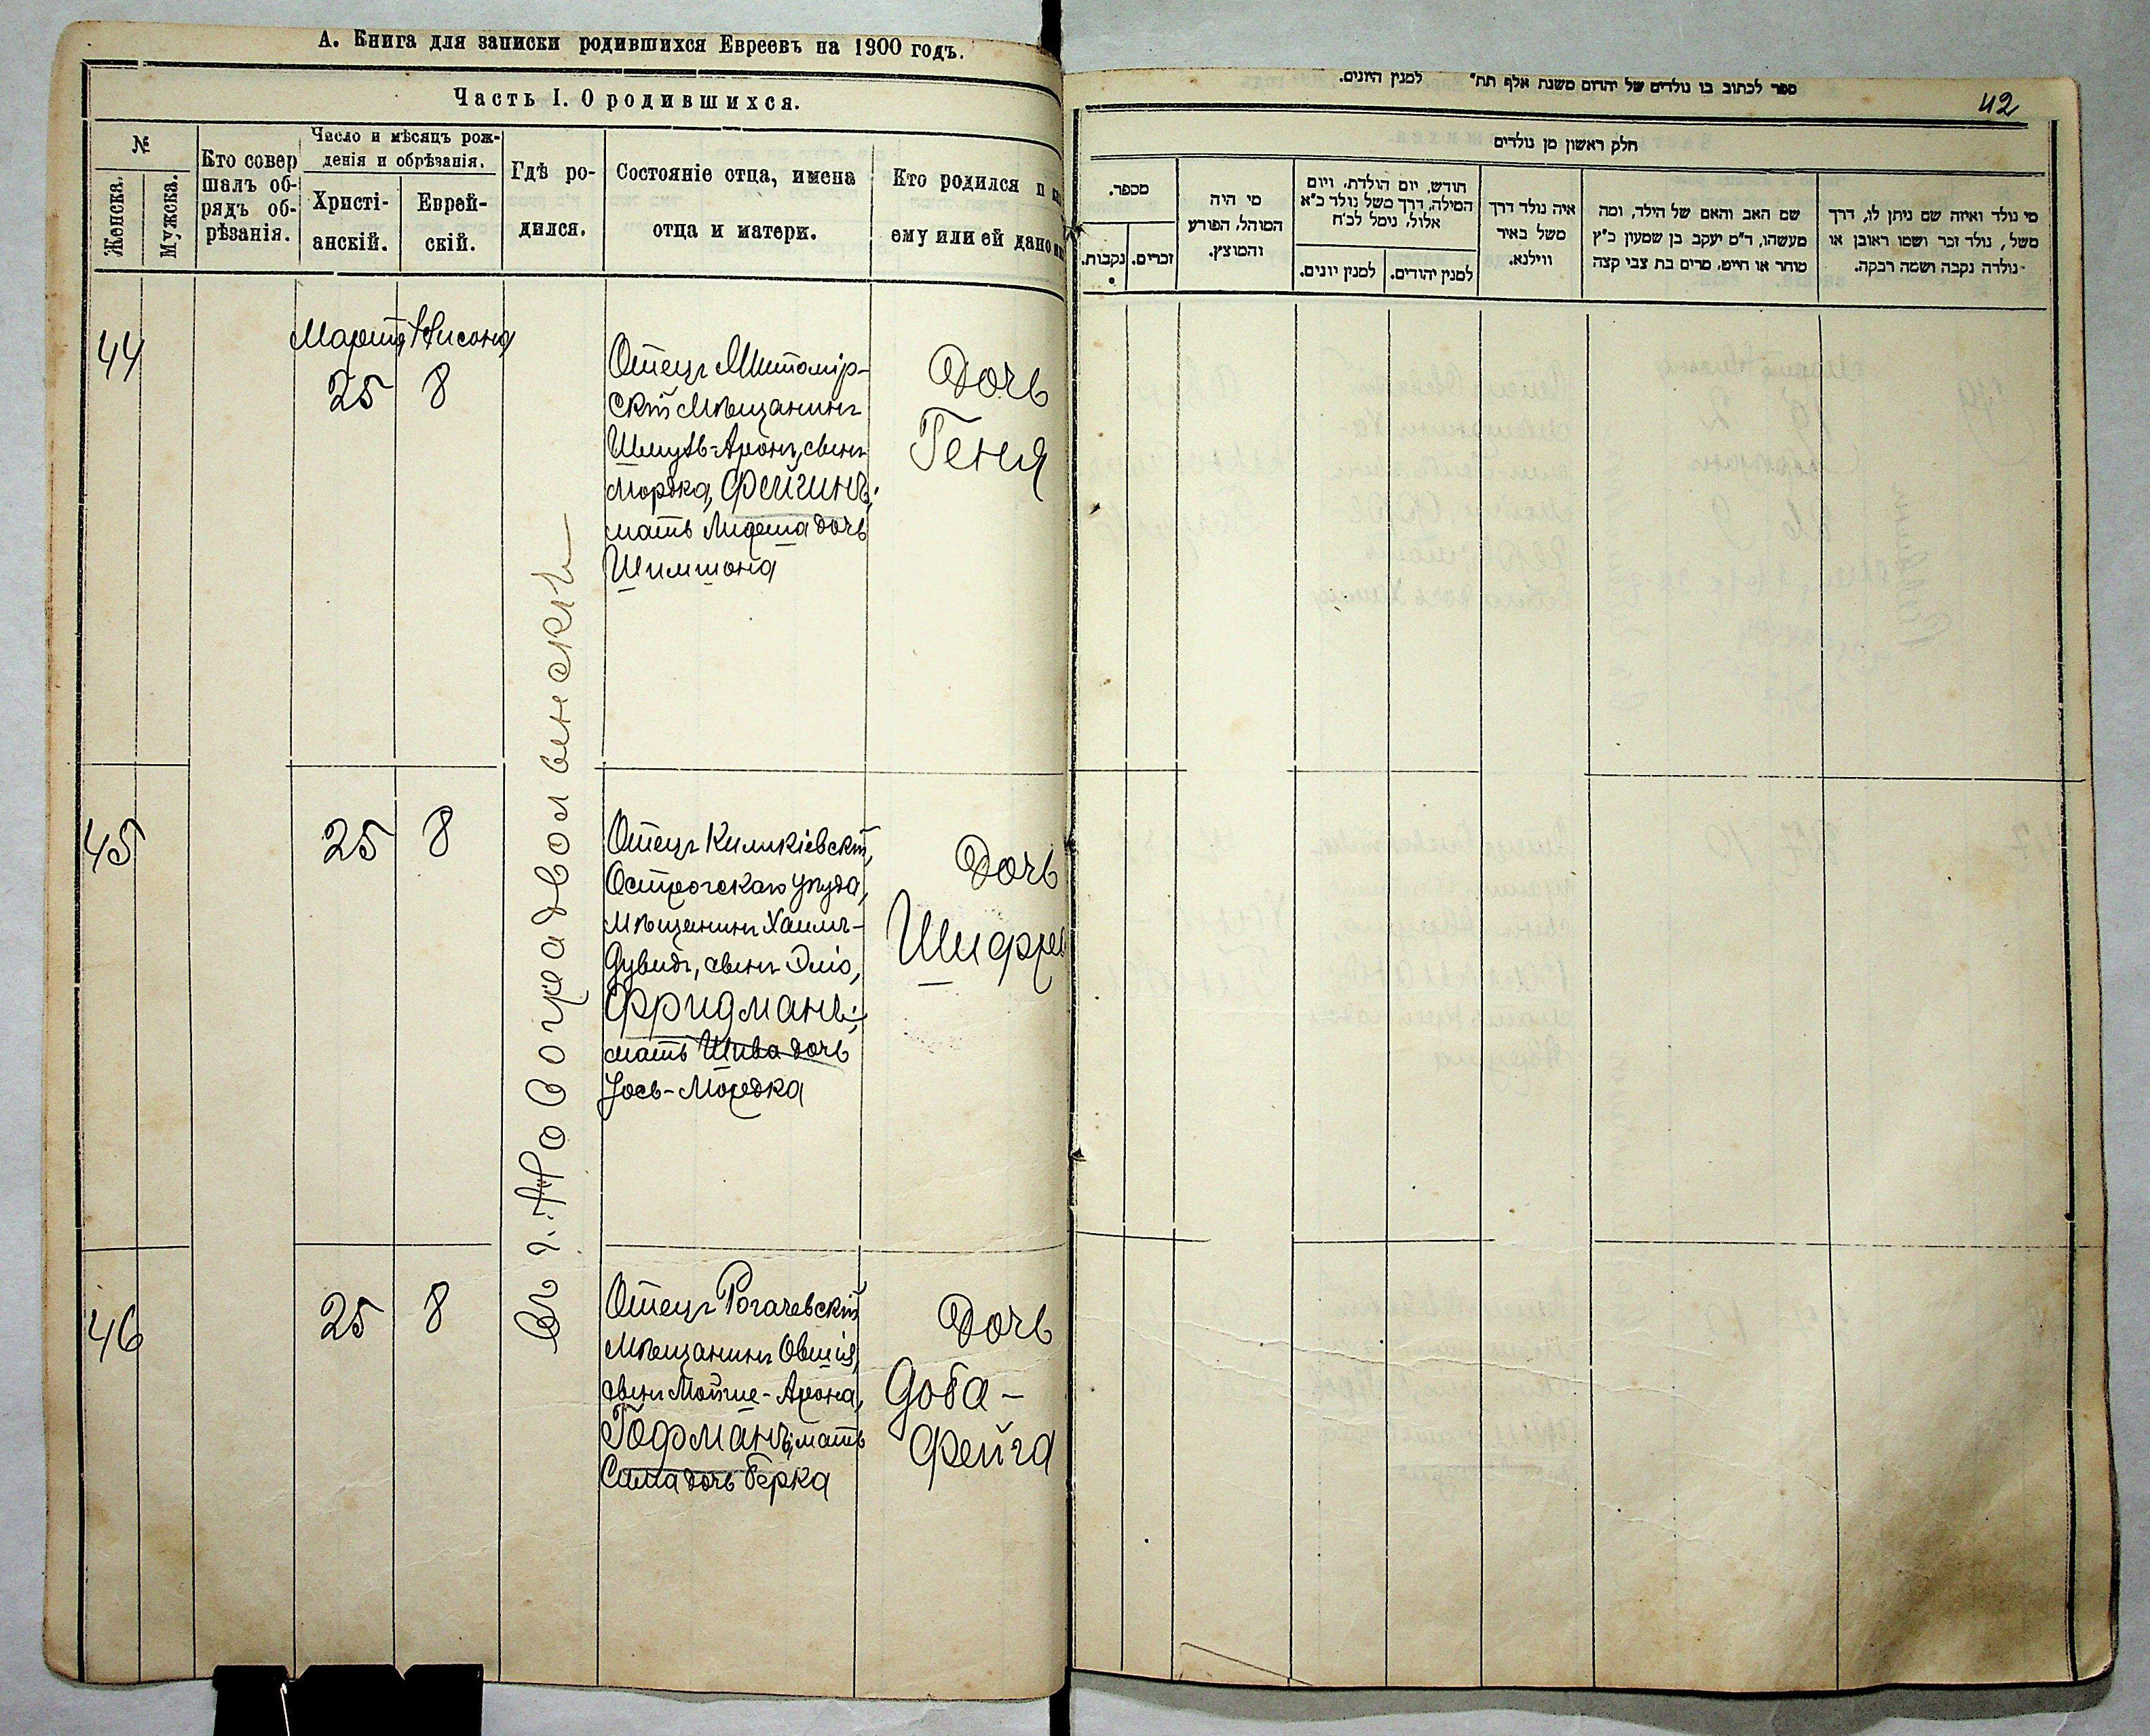 А. Книга для записки родившихся Евреевъ на 1900 годъ.
Часть I. О родившихся.
№
Женска.
Мужска.
Кто совер
шалъ об-
рядъ об-
рѣзанія.
Число и мѣсяцъ рож-
денія и обрѣзанія.
Христі-
анскій.
Еврей-
скій.
Гдѣ ро-
дился.
Состояніе отца, имена
отца и матери.
Кто родился и
ему или ей дано
44
Марта Нисона
25 8
Отецъ Житомір-
скій Мѣщанинъ
Шмуль-Аронъ, сынъ
Мордка, Фейгинъ;
мать дочь
Шимшона
Дочь
Геня
Въ г. Новоградволынскѣ
45
25 8
Отецъ Киликіевскій,
Острогскаго уѣзда,
Мѣщанинъ Хаимъ-
Дувидъ, сынъ Эліо,
Фридманъ;
мать Шива дочь
Іось-Мордка
Дочь
Шифра
46
25 8
Отецъ Рогачевскій
Мѣщанинъ Овшія,
сынъ Мойше-Арона,
Гофманъ; мать
Сима дочь Берка
Дочь
Доба-
Фейга
ספר לכתוב בו נולדים של יהדים משנת אלף תת״ למנין היונים.
42
חלק ראשון מן נולדים
מספר.
נקבות.
זכרים.
מי היה
המוהל, הפורע
והמוצץ.
חודש, יום הולדת, ויום
המילה, דרך משל נולד כ״א
אלול, נימל לכ״ח
למנין יונים.
למנין יהודים.
איה נולד דרך
משל באיר
ווילנא.
שם האב והאם של הילד, ומה
מעשהו, ד״מ יעקב בן שמעון כ״ץ
סוחר או חייט, מרים בת צבי קצה
מי נולד ואיזה שם ניתן לו, דרך
משל, נולד זכר ושמו ראובן או
נולדה נקבה ושמה רבקה.